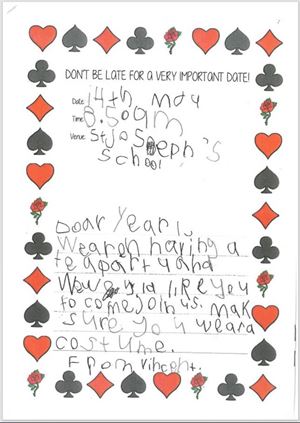 DON'T BE LATE FOR A VERY IMPORTANT DATE!
Date: 14th May
Time: 8.50am
Venue: St Joseph's
School
Dear Year 1,
We are having a
tea party and
would like you
to come join us. Mak
sure you wear a
costume.
From Vincent.